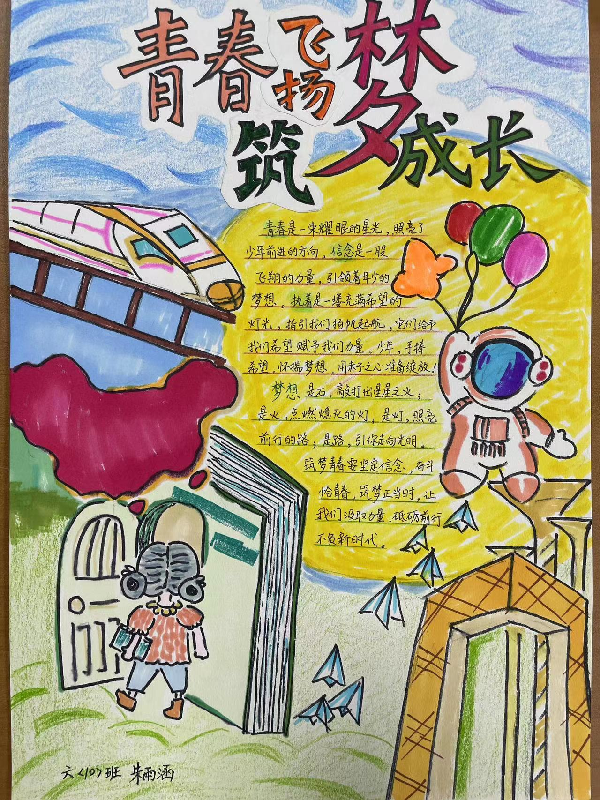 青春飞扬
筑梦成长
青春是一束耀眼的星光，照亮了
少年前进的方向，信念是一股
飞翔的力量，引领着年少的
梦想，执着是一搂充满希望的
灯光，指引我们扬帆起航，它们给予
我们希望赋予我们力量，少年，手捧
希望，怀揣梦想，用赤子之心准备绽放！
梦想是石，敲打出星星之火；
是火，点燃熄灭的灯，是灯，照亮
前行的路；是路，引你走向光明。
筑梦青春要坚定信念，奋斗
恰自春，筑梦正当时，让
我们汲取力量，砥砺前行
不负新时代。
六〈10〉班 朱雨涵